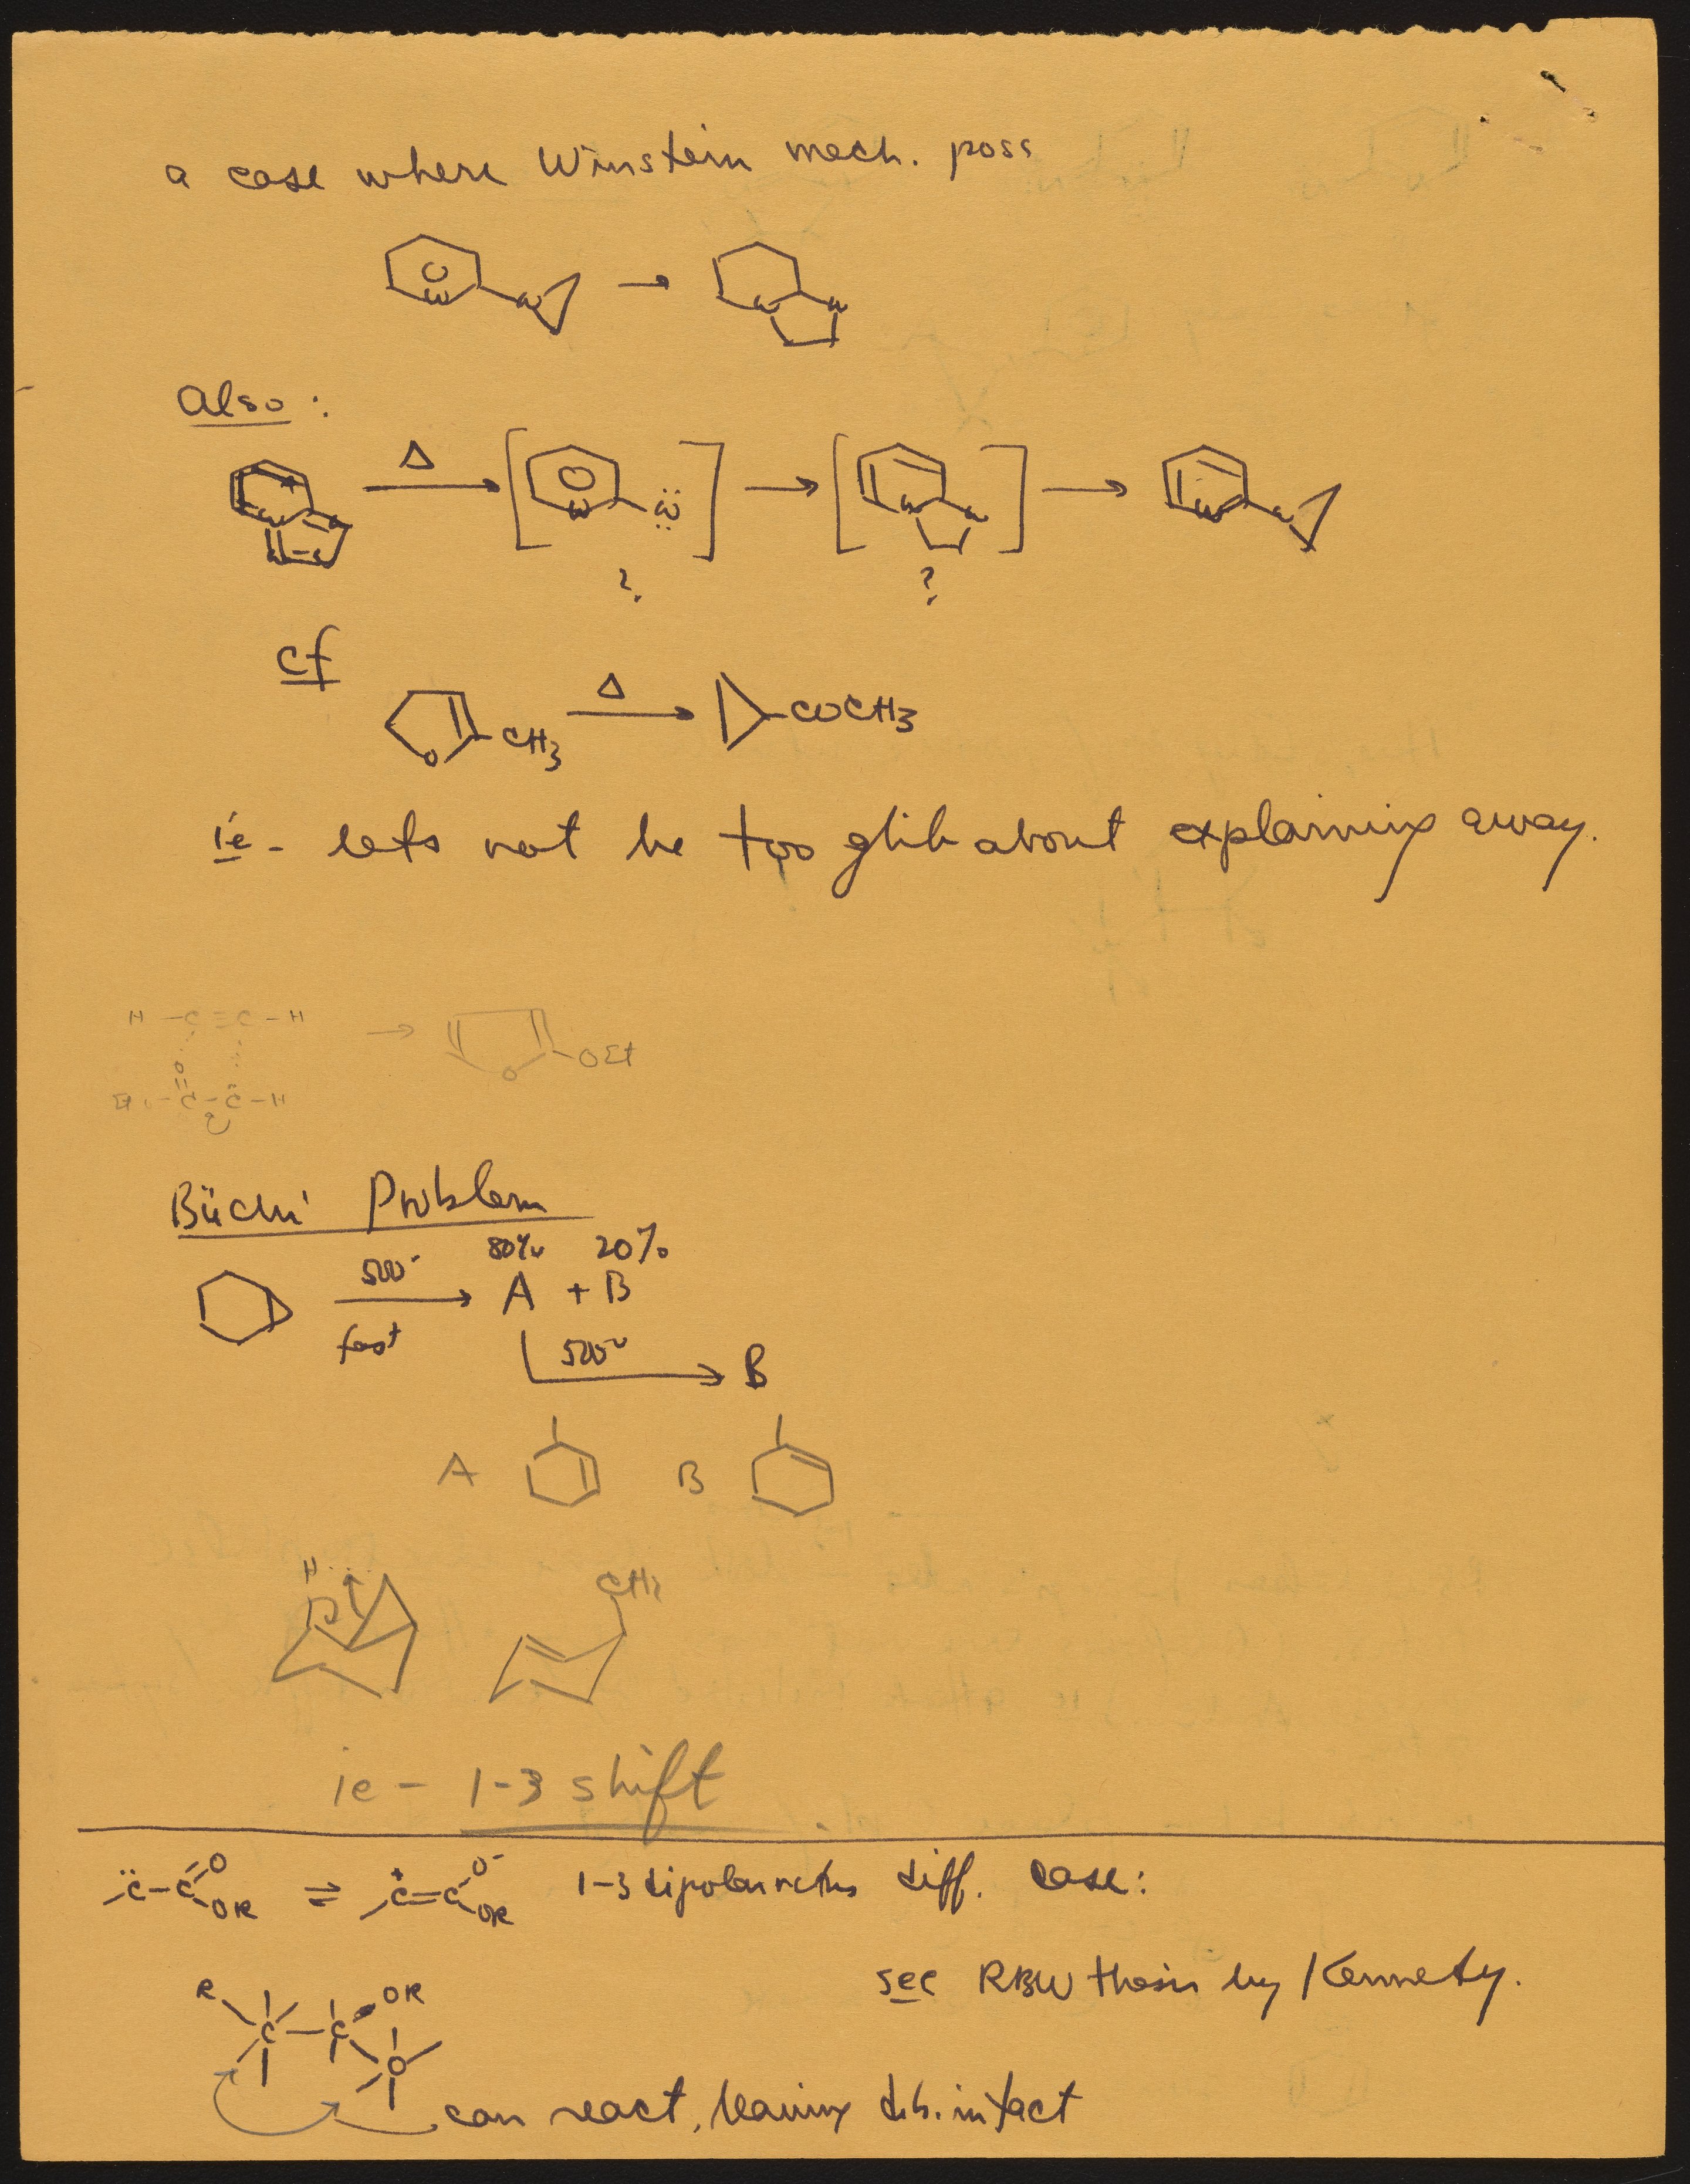 a case where Winstein mech. poss
→
Also:
Δ → [ N N̈ ] → [ N N ] → N N
? ?
cf
O CH3 Δ → COCH3
ie - lets not be too glib about explaining away.
H - C ≡ C - H → O OEt
O
- C - C̈ - H
Büchi Problem
80% 20%
500° A + B
fast
500° → B
A B
H CH3
ie - 1-3 shift
C̈-C O OR ⇌ C=C O- OR 1-3 dipolar diff. case:
see RBW thesis by Kennedy.
R C - C OR
O
can react, leaving d.b. intact